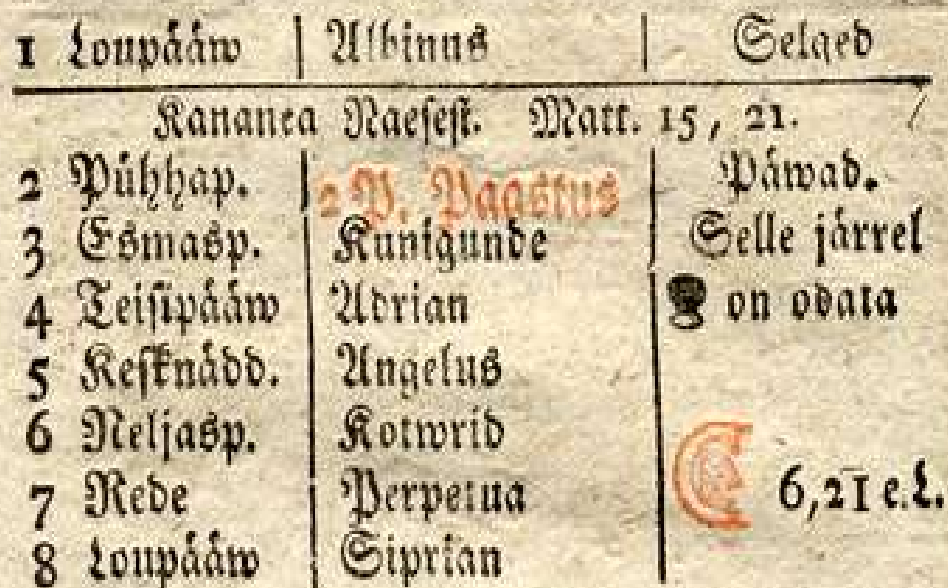 1 Loupääw | Albinus | Selged
Kananea Naesest. Matt. 15, 21.
2 Pühhap. | 2 P. Paastus | Päwad.
3 Esmasp. | Kunigunde | Selle järrel
4 Teisipääw | Adrian | on odata
5 Kesknädd. | Angelus
6 Neljasp. | Kotwrid
7 Rede | Perpetua | 6,21 e.L.
8 Loupääw | Siprian